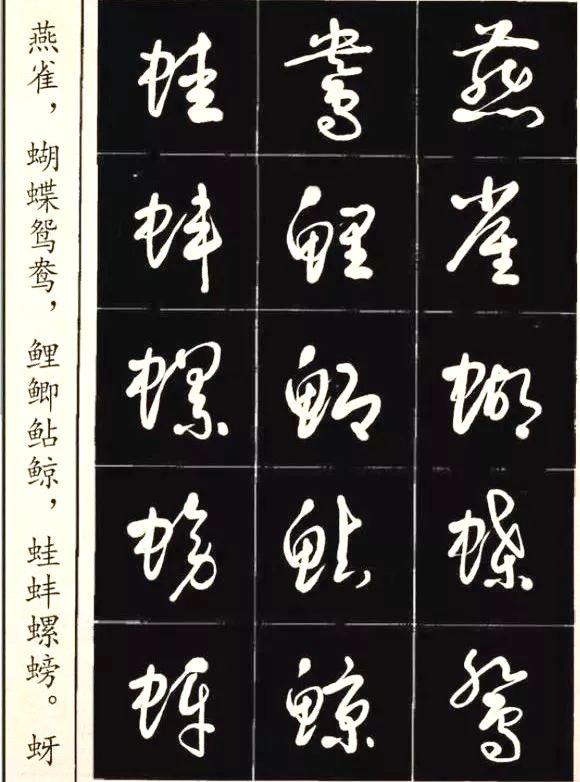 燕雀蝴蝶鸳
鸯鲤鲫鲇鲸
蛙蚌螺螃蚜
燕雀，蝴蝶鸳鸯，鲤鲫鲇鲸，蛙蚌螺螃。蚜